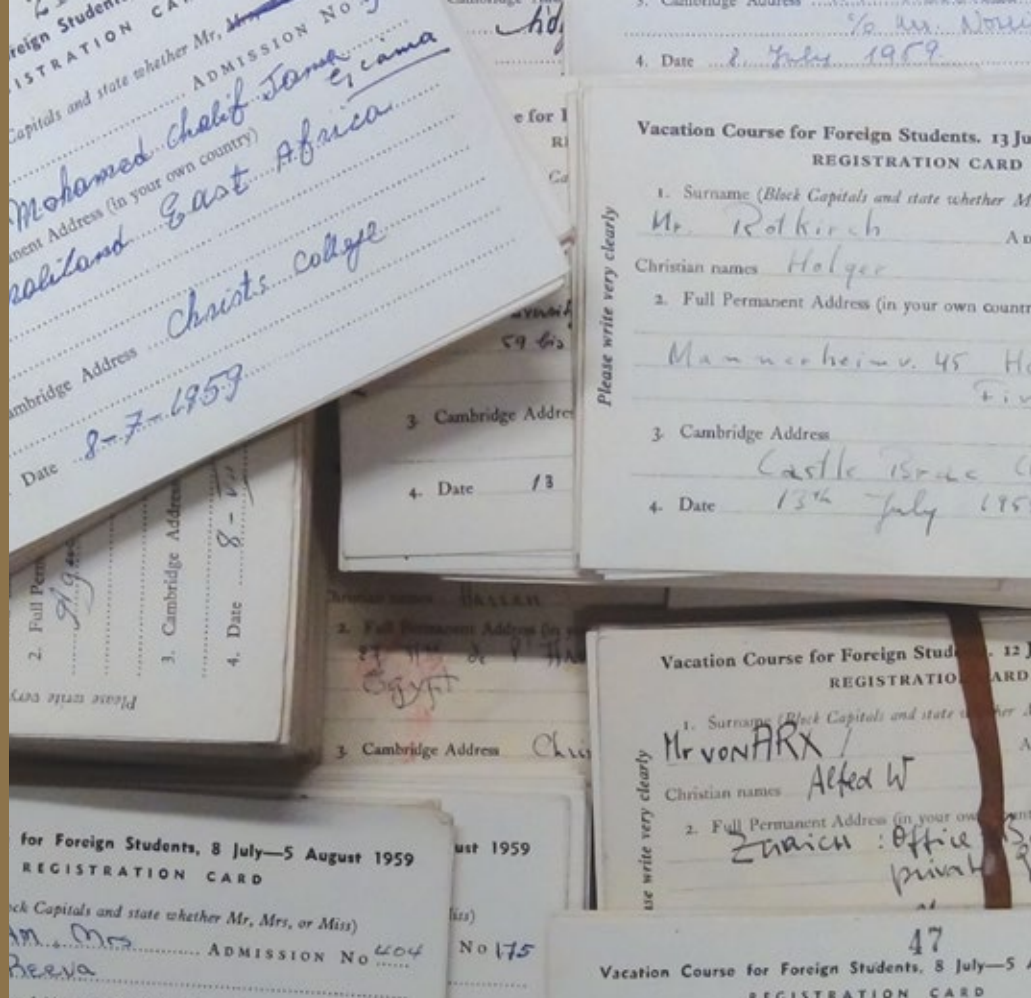 reign Student
ISTRATION CA
Capitals and state whether Mr,
ADMISSION No
Mohamed Chalif Jama
Giama
nent Address (in your own country)
maliland East Africa
ambridge Address Christs College
Date 8-7-1959
e for
3. Cambridge Address
c/o
4. Date 8 July 1959
Vacation Course for Foreign Students. 13 Ju
REGISTRATION CARD
1. Surname (Block Capitals and state whether M
Mr. Rotkirch
Christian names Holger
2. Full Permanent Address (in your own countr
Mannerheimv. 45 He
Fin
3. Cambridge Address
Castle Brae
4. Date 13th July 195
Please write very clearly
59 bis
3. Cambridge Addre
4. Date 13
2. Full Perm
3. Cambridge Address
4. Date 8-
Please write very
Christian names
2. Full Permanent Address (in y
Egypt
3. Cambridge Address Chri
Vacation Course for Foreign Stud . 12 J
REGISTRATIO ARD
1. Surname (Block Capitals and state w her
Mr von ARX
Christian names Alfed W
2. Full Permanent Address (in your ow
Zürich : Office
private
se write very clearly
for Foreign Students, 8 July—5 August 1959
REGISTRATION CARD
ck Capitals and state whether Mr, Mrs, or Miss)
Mrs ADMISSION No 404
Reeva
ust 1959
iss)
No 175
47
Vacation Course for Foreign Students, 8 July—5 A
REGISTRATION CARD